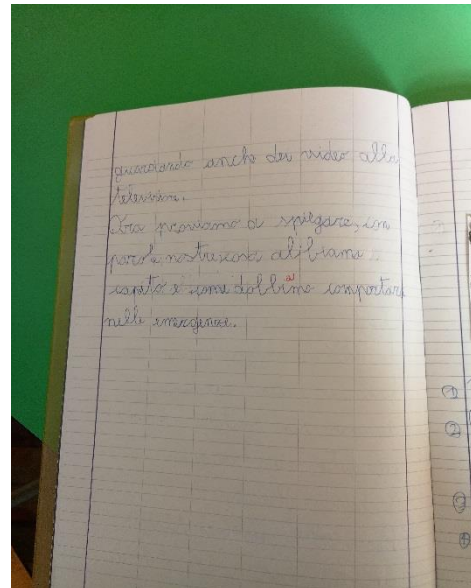 guardando anche dei video alla
televisione.
Ora proviamo a spiegare, con
parole nostre cosa abbiamo
capito e come dobbimo comportarci
nelle emergenze.
a
1
2
3
4